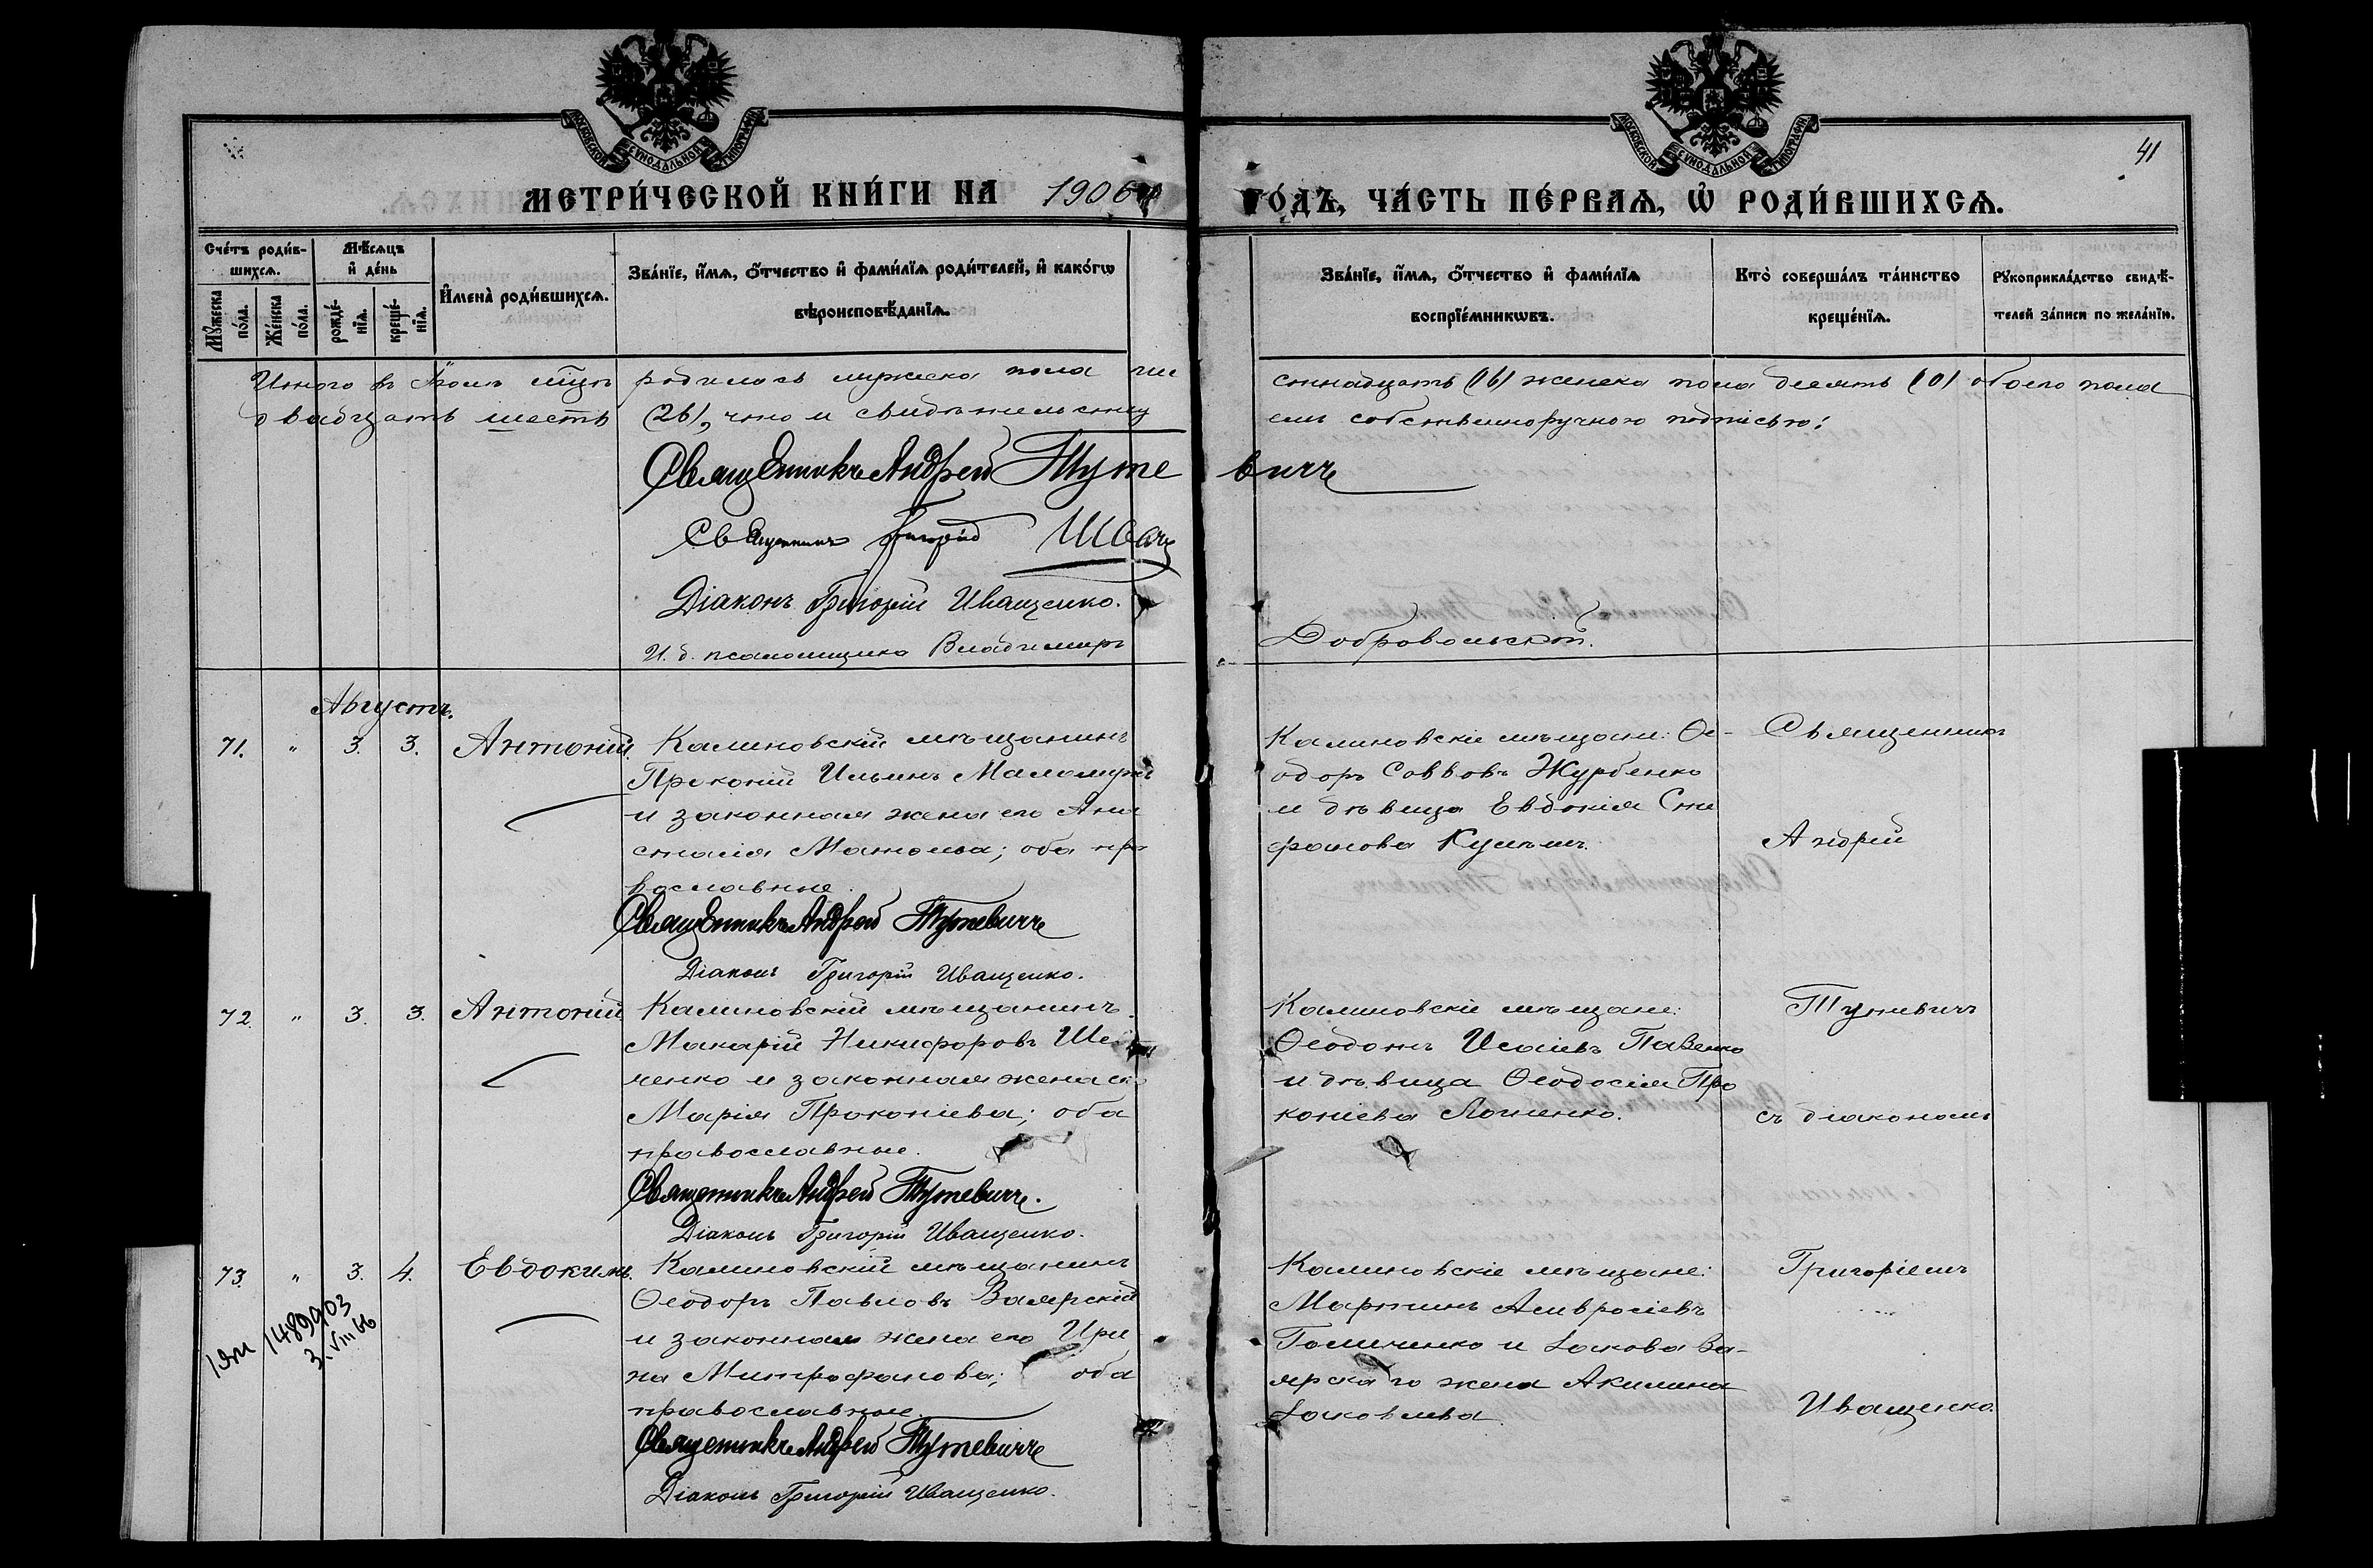 МОСКОВСКОЙ СѴНОДАЛЬНОЙ ТИПОГРАФІИ
МОСКОВСКОЙ СѴНОДАЛЬНОЙ ТИПОГРАФІИ
41
МЕТРИ́ЧЕСКОЙ КНИ́ГИ НА 1906 ГО́ДЪ, ЧА́СТЬ ПЕ́РВАѦ, Ѡ҆ РОДИ́ВШИХСѦ.
Сче́тъ роди́в-
шихсѧ.
Мꙋ́жеска по́ла.
Же́нска по́ла.
Мѣ́сѧцъ
и҆ де́нь
рожде́-
нїѧ.
креще́-
нїѧ.
И҆мена̀ роди́вшихсѧ.
Зва́нїе, и҆́мѧ, ѻ҆́тчество и҆ фами́лїѧ роди́телей, и҆ како́гѡ
вѣроисповѣ́данїѧ.
Зва́нїе, и҆́мѧ, ѻ҆́тчество и҆ фами́лїѧ
воспрїе́мникѡвъ.
Кто̀ соверша́лъ та́инство
креще́нїѧ.
Рꙋкоприкла́дство свидѣ́-
телей за́писи по жела́нїю.
Итого въ Іюлѣ мѣцѣ родилось мужеска пола ше стнадцать (16) женска пола десять (10) обоего пола
двадцать шесть (26), что и свидѣтельству емъ собственноручною подписью:
Священникъ Андрей Туте вичъ
Священникъ Григорій Швач
Діаконъ Григорій Иващенко.
И. д. псаломщика Владимиръ Добровольскій.
Августъ.
71. " 3. 3. Антоній.
Калиновскій мѣщанинъ
Прокопій Ильинъ Маломужъ
и законная жена его Ана
стасія ; оба пра
вославные.
Священникъ Андрей Тутевичъ
Діаконъ Григорій Иващенко.
Калиновскіе мѣщане: Ѳе-
одоръ Саввовъ Журбенко
и дѣвица Евдокія Сте
фанова
Священникъ
Андрей
72. " 3. 3. Антоній.
Калиновскій мѣщанинъ
Макарій Никифоровъ Шев
ченко и законная жена его
Марія Прокопіева; оба
православные.
Священникъ Андрей Тутевичъ.
Діаконъ Григорій Иващенко.
Калиновскіе мѣщане:
Ѳеодотъ Исаіевъ Павенко
и дѣвица Ѳеодосія Про
копіева
Тутевичъ
съ діакономъ
73. " 3. 4. Евдокимъ.
Калиновскій мѣщанинъ
Ѳеодоръ Павловъ Заярскій
и законная жена его Ири
на Митрофанова; оба
православные.
Священникъ Андрей Тутевичъ
Діаконъ Григорій Иващенко.
1489903
3.VIII 66
Калиновскіе мѣщане:
Мартинъ Амвросіевъ
и Іакова За-
ярскаго жена Акилина
Іаковлева.
Григоріемъ
Иващенко.